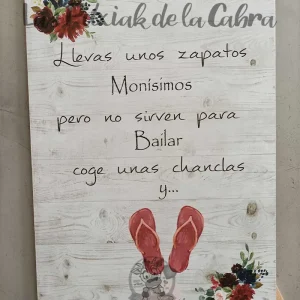 de la Cabra
Llevas unos zapatos
Monísimos
pero no sirven para
Bailar
coge unas chanclas
y...